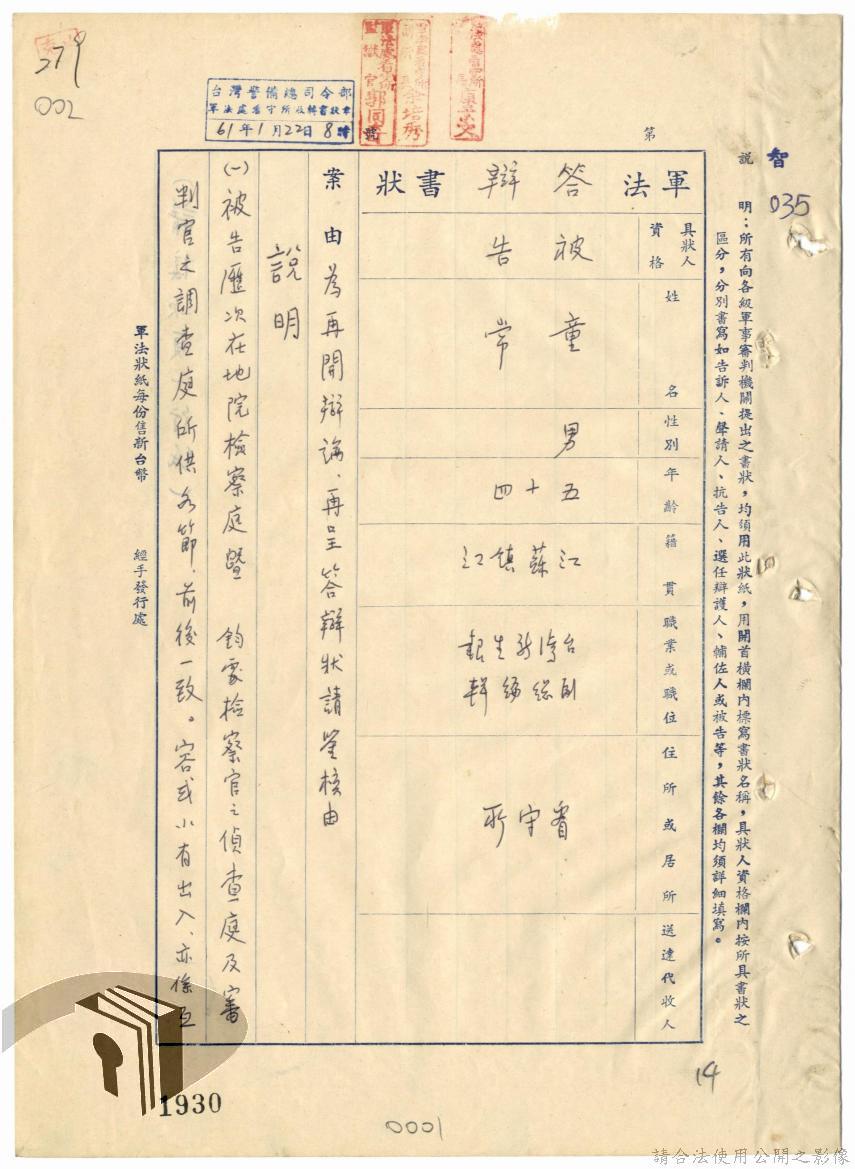 智
035
第 號
說 明：所有向各級軍事審判機關提出之書狀，均須用此狀紙，用開首橫欄內標寫書狀名稱，具狀人資格欄內按所具書狀之
區分，分別書寫如告訴人、聲請人、抗告人、選任辯護人、輔佐人或被告等，其餘各欄均須詳細填寫。
軍法 答辯 書狀
具狀人資格 被告
姓名 童常
性別 男
年齡 四十五
籍貫 江蘇鎮江
職業或職位 台灣新生報副總編輯
住所或居所 看守所
送達代收人
案由 為再開辯論，再呈答辯狀請鑒核由
說明
(一)被告歷次在地院檢察庭暨 鈞處檢察官之偵查庭及審
判官之調查庭所供各節，前後一致。容或小有出入，亦係
軍法狀紙每份售新台幣 經手發行處
台灣警備總司令部
軍法處看守所收轉書狀章
61年1月22日8時
279
002
14
1930
0001
請合法使用公開之影像